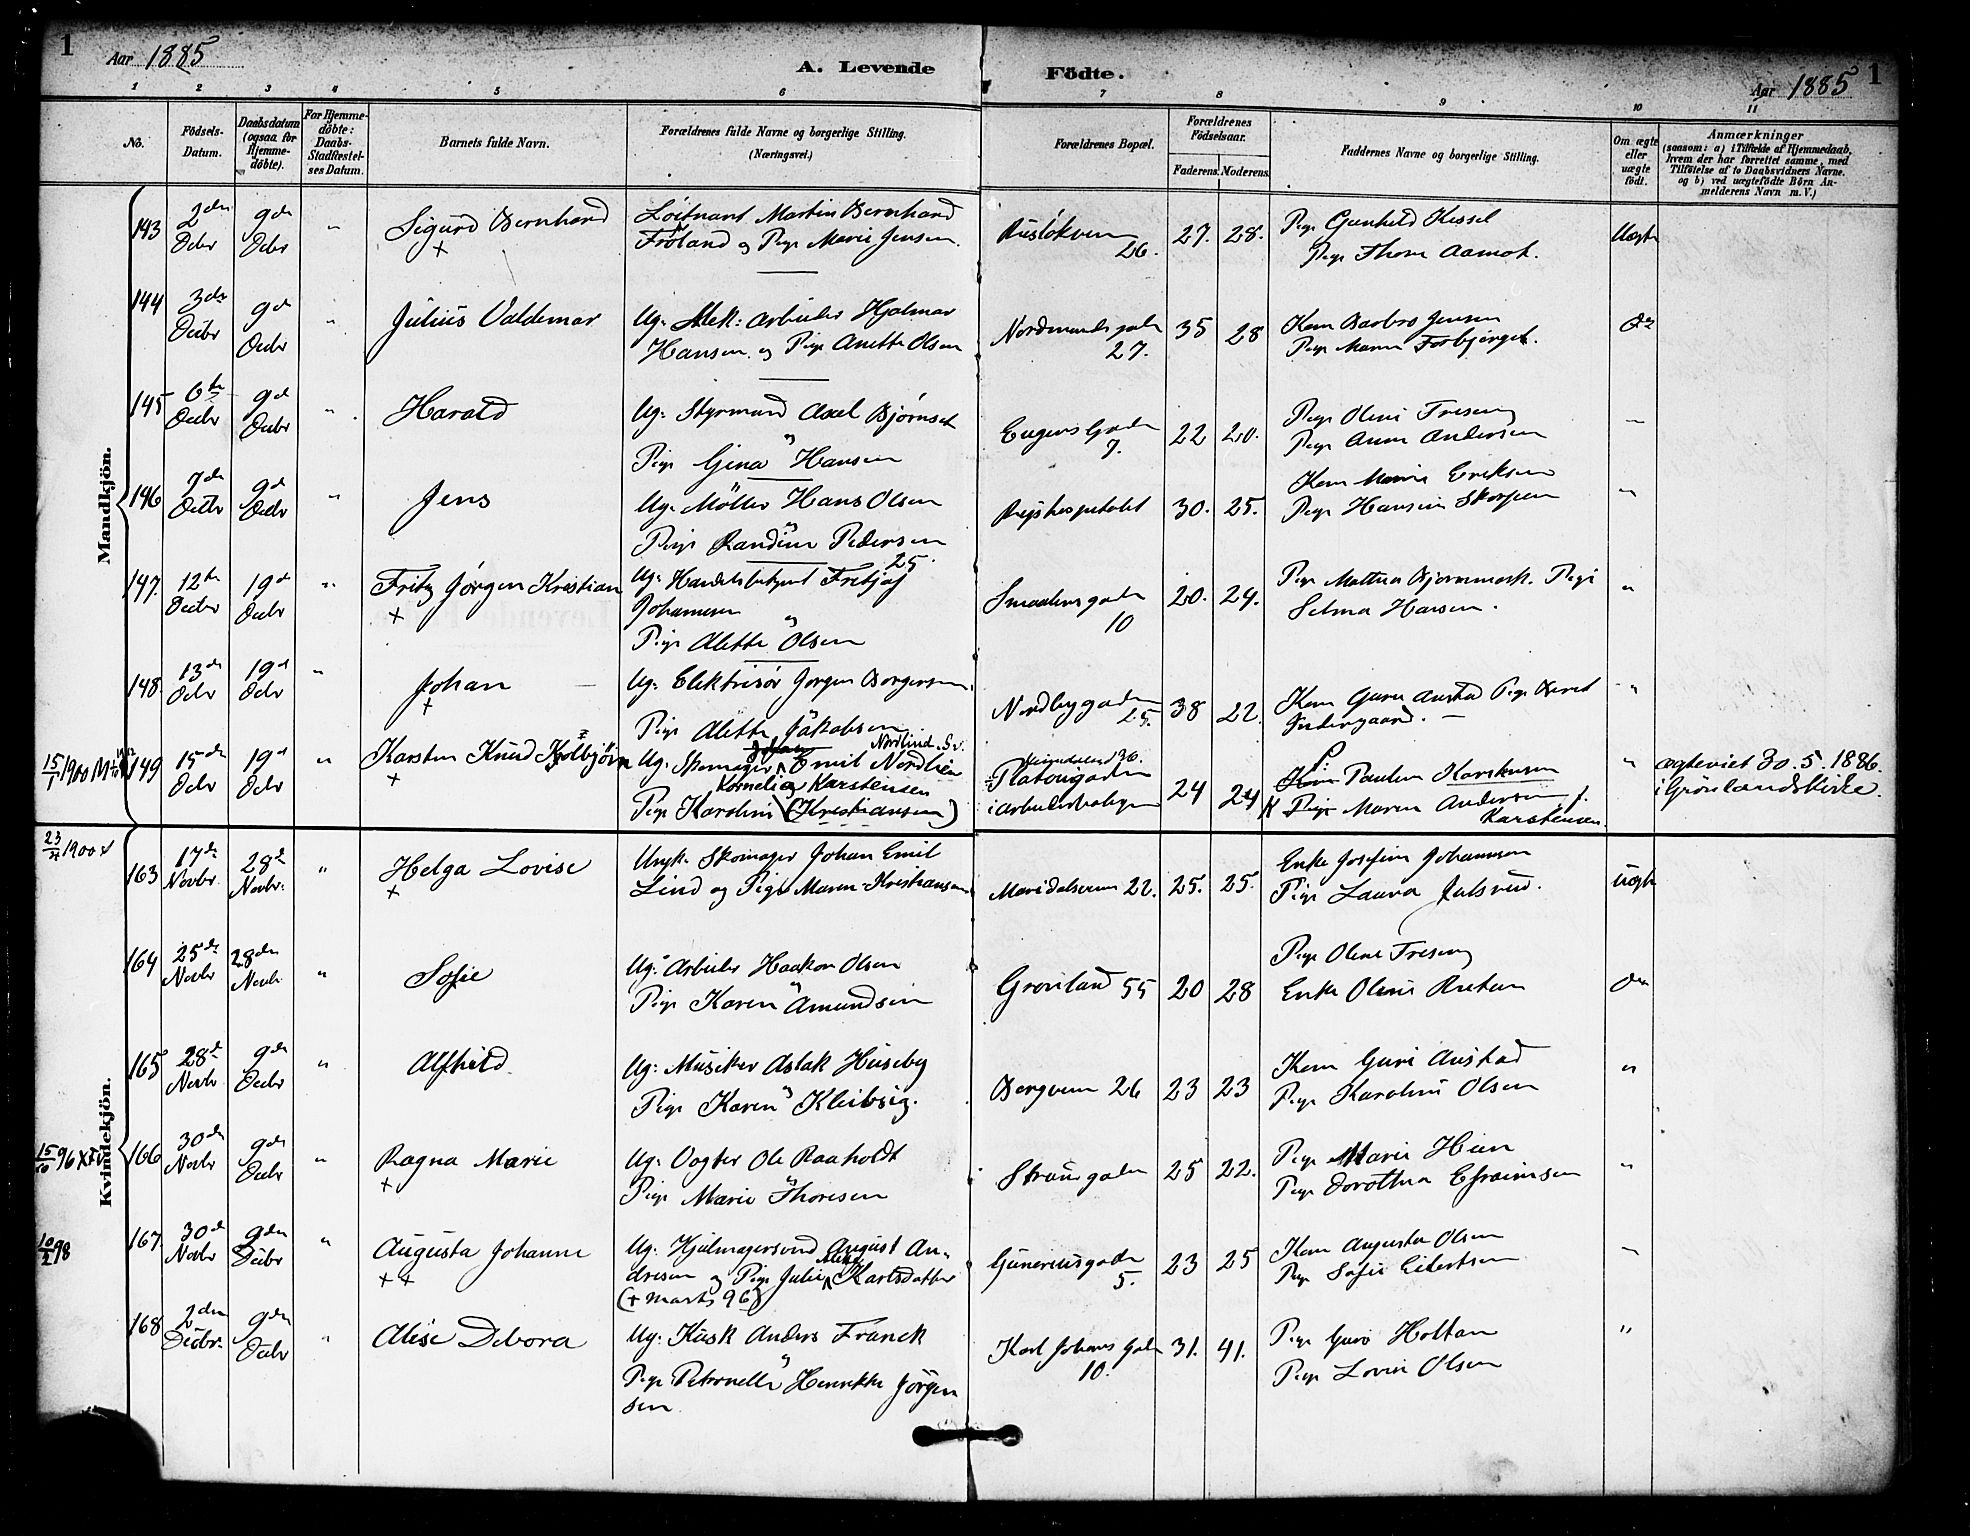 1
Aar 1885
A. Levende
Födte.
Aar 1885
1
1 2 3 4 5 6 7 8 9 10 11
No.
Födsels-Datum.
Daabsdatum (ogsaa for Hjemme-döbte).
For Hjemme-döbte: Daabs-Stadfæstel-ses Datum.
Barnets fulde Navn.
Forældrenes fulde Navne og borgerlige Stilling.
(Næringsvei.)
Forældrenes Bopæl.
Forældrenes Födselsaar.
Faderens. Moderens.
Faddernes Navne og borgerlige Stilling.
Om ægte eller uægte födt.
Anmærkninger
(saasom: a) i Tilfælde af Hjemmedaab,
hvem der har forrettet samme, med
Tilföielse af to Daabsvidners Navne.
og b) ved uægtefödte Börn An-
melderens Navn m. V.)
Mandkjön.
143 2den Debr 9de Debr " Sigurd Bernhard + Løitnant Martin Bernhard
Fröland og Pige Marie Jensen. Rusløkveien 26. 27. 28. Pige Gunhild Kessel
Pige Thora Aamot. Uægte
144 3de Decbr 9de Decbr " Julius Valdemar Ug. Mek: Arbeider Hjalmar
Hansen og Pige Anette Olsen Nordmandsgaden 27. 35 28 Kone Barbro Jensen
Pige Maren Torbjørgst. Do
145 6te Decbr 9de Decbr " Harald Ug. Styrmand Axel Bjørnset
Pige Gina Hansen Eugens Gade 7. 22 20. Pige Oline
Pige Anne Andersen "
146 7de Decbr 9de Decbr " Jens Ug. Möller Hans Olsen
Pige Randine Pedersen Rigshospitalet 30. 25. Kone Marie Eriksen
Pige Hansine Skorpen "
147. 12te Decbr 19de Decbr " Fritz Jörgen Kristian + Ug. Handelsbetjent Fritjof 25.
Johannesen
Pige Alette Olsen Smaalensgaden 10 20. 24. Pige Mathea Bjørnemark. Pige
Selma Hansen. "
148. 13de Debr 19de Debr " Johan + Ug. Elektrisör Jørgen Borgersen.
Pige Alette Jakobsen Nordbygaden 25. 38 22. Kone Guri Austad Pige Beret
"
15/1 1900 149 15de Debr 19de Debr " Karsten Knud Kolbjörn + Ug. Skomager Johan Emil Nordlien Nordlind. Sv.
Pige Karoline Kornelia Karstensen (Kristiansen) Platougaden 30.
i Arbeiderboligen 24 24 Kone Paulin Karstensen
Pige Maren Andersen f. Karstensen. " ægteviet 30.5.1886.
i Grönlands Kirke.
Kvindekjön.
23/4 1900 163 17de Novbr 28de Novbr. " Helga Lovise + Ungk. Skomager Johan Emil
Lind og Pige Maren Kristiansen Maridalsveien 22. 25. 25. Enke Josefine Johannesen
Pige Laura Julsrud. Uægte
164 25de Novbr 28den Novbr " Sofie Ug. Arbeider Haakon Olsen
Pige Karen Amundsen Grønland 55 20 28 Pige Oline
Enke Oline Do
165 28de Novbr 9de Decbr " Alfhild Ug. Musiker Aslak Huseby
Pige Karen Kleibsig. Bergveien 26 23 23 Kone Guri Austad
Pige Karoline Olsen "
15/10 96 166 30de Novbr 9de Decbr " Ragna Marie + Ug. Vogter Ole Raaholdt
Pige Marie Thoresen Straumsgaden 25 22. Pige Marie Hein
Pige Dorothea Efraimsen "
10/2 98 167. 30de Novbr 9den Decbr " Augusta Johanne + + Ug. Hjulmagersvend August An-
dresen og Pige Julie Karlsdatter
(+ Marts 96) Guneriusgaden 5. 23 25 Kone Augusta Olsen
Pige Sofie Eilertsen "
168 2den Decbr. 9den Decbr " Alise Debora Ug. Kusk Anders Franck
Pige Petronelle Henrikke Jörgen
sen. Karl Johans Gade 10. 31. 41. Pige Guro Holtan
Pige Lovise Olsen "